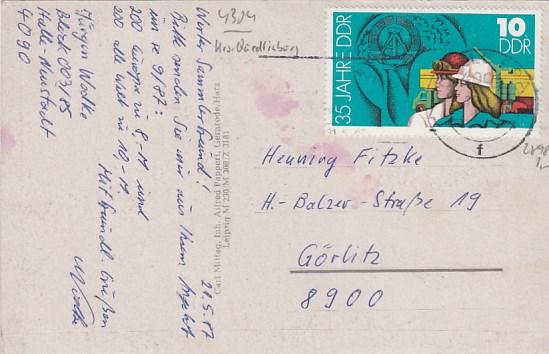 4304
Krs. Quedlinburg
35 JAHRE DDR
10
DDR
f
Henning Fitzke
H.-Balzer-Straße 19
Görlitz
8900
Carl Mittag, Inh. Alfred Pappert, Gernrode/Harz
Leipzig M 230/M 308/Z 3181
21.5.87
Werter Sammlerfreund!
Bitte senden Sie mir aus Ihrem Angebot
200 Europa zu 8,-M und
200 alle Welt zu 10,-M
Mit freundl. Grüßen
Jürgen
Block 003/85
Halle-Neustadt
4090